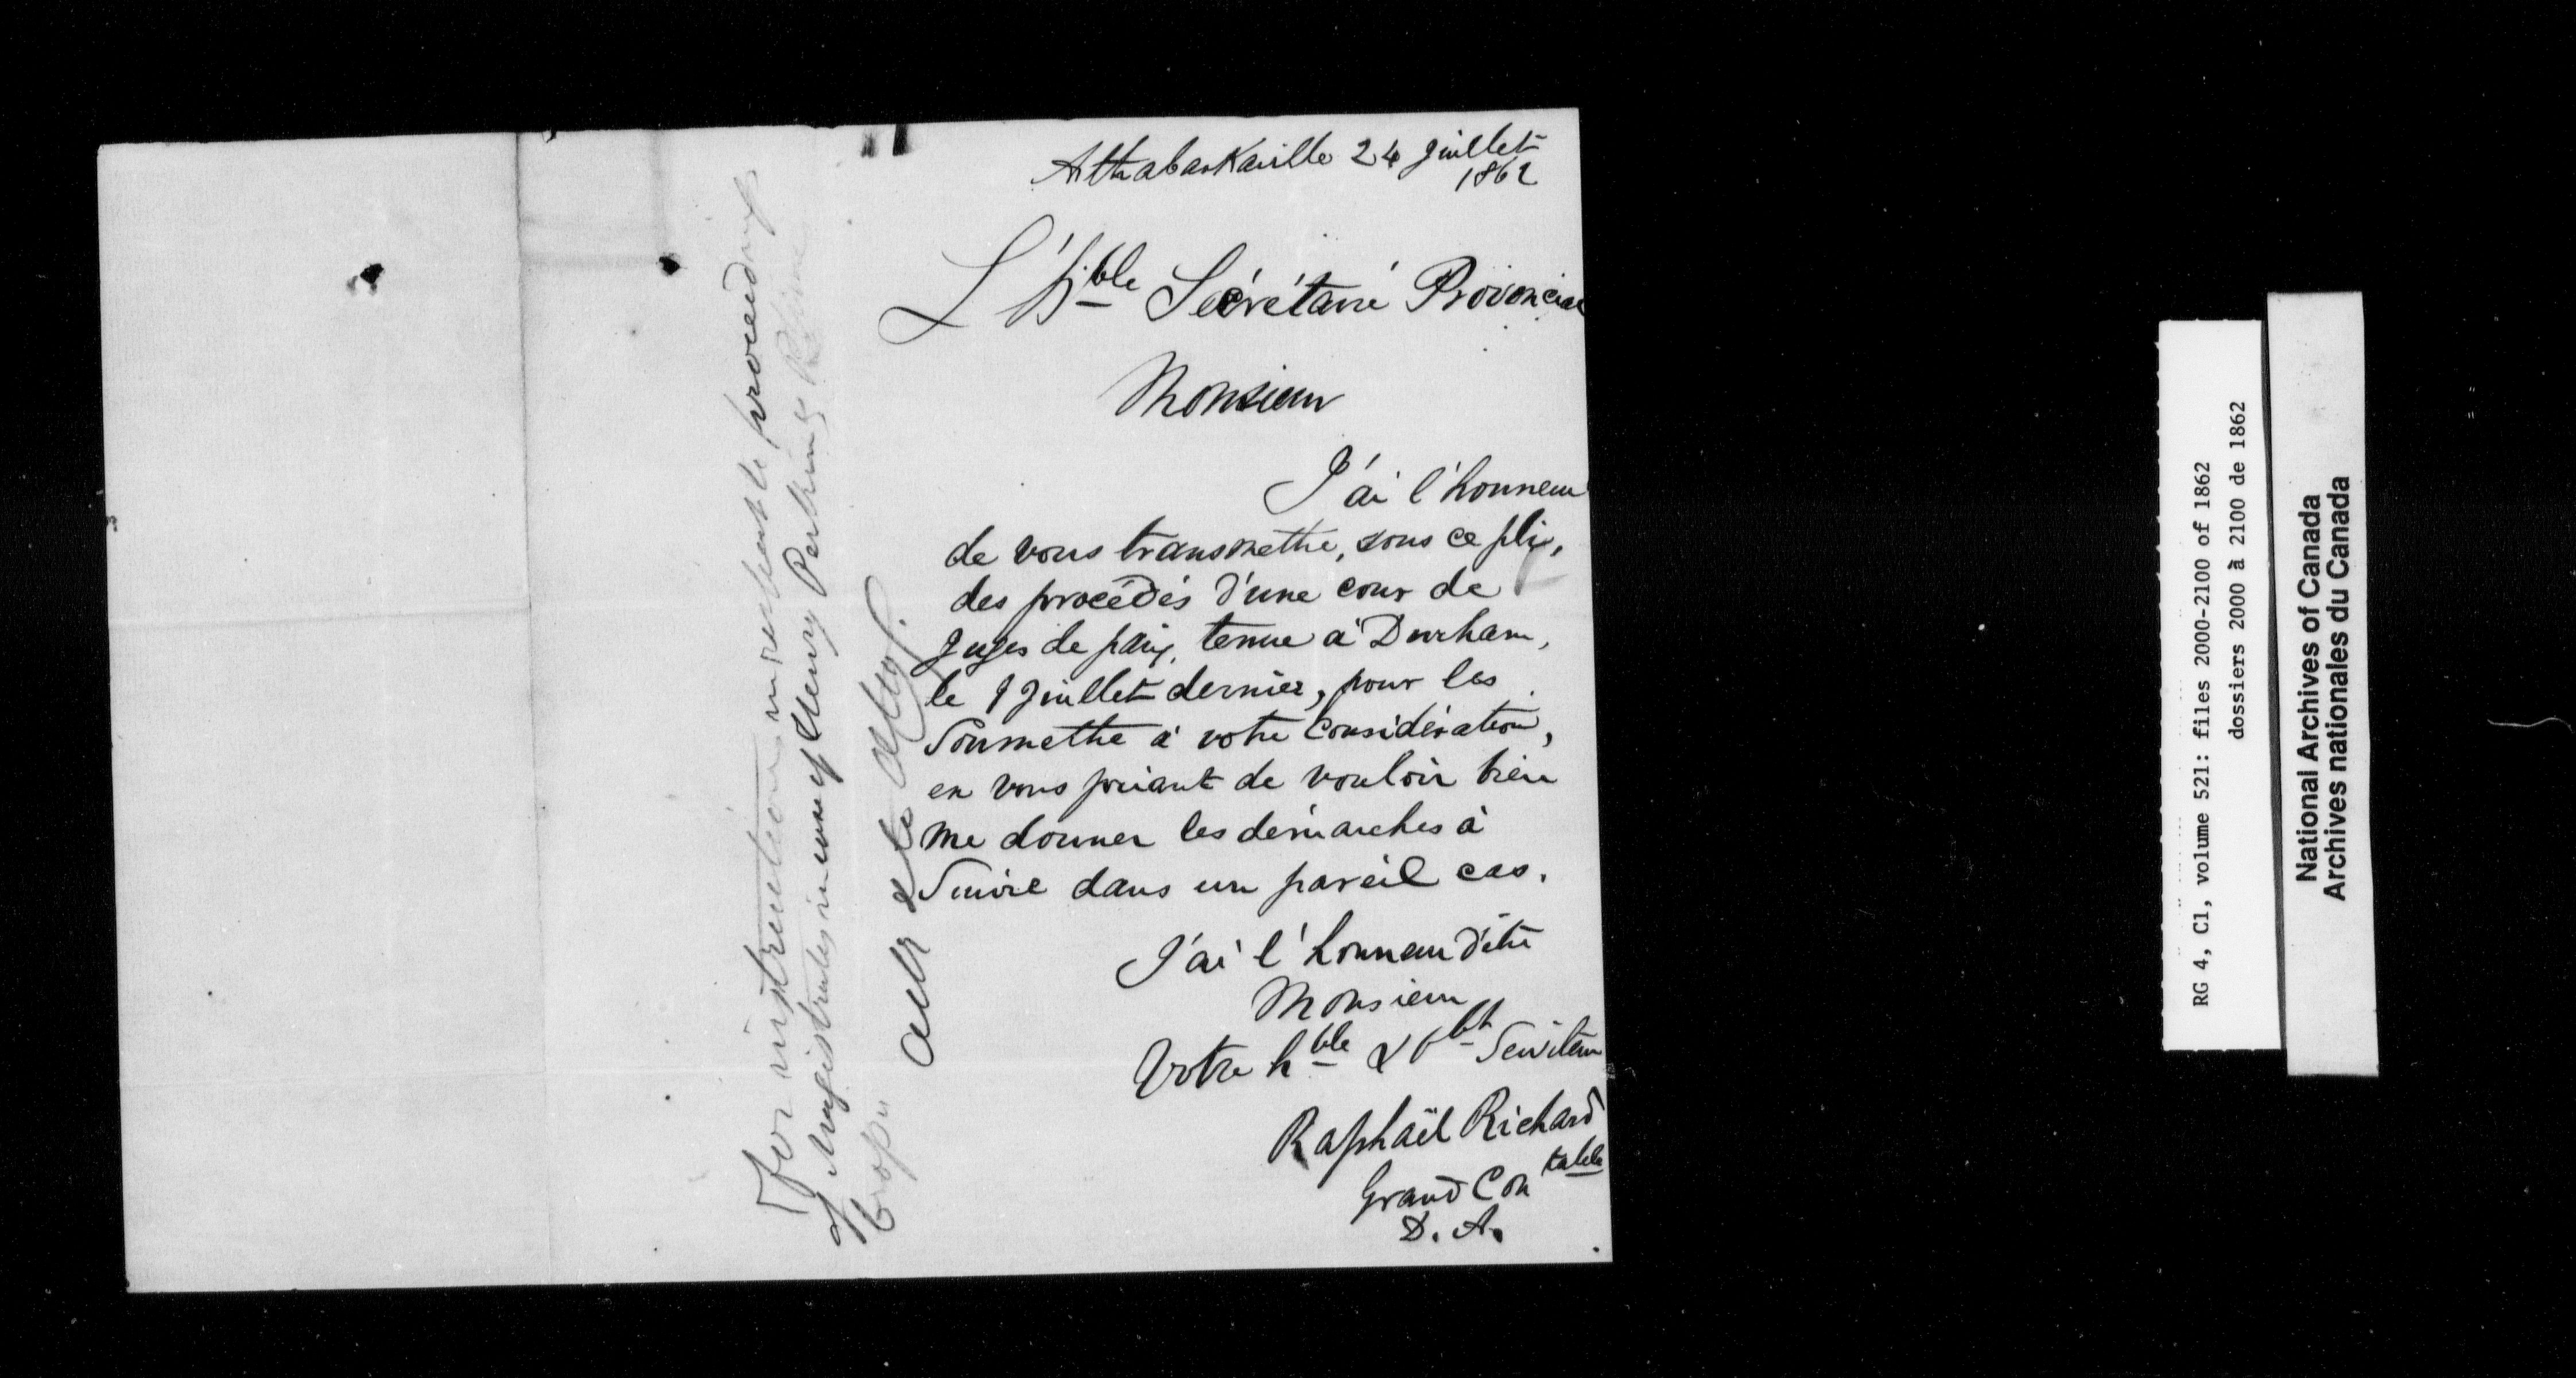 Athabaskaville 24 Juillet
1862
L'H'ble Sécrétaire Provincial
Monsieur
J'ai l'honneur
de vous transmettre, sous ce pli,
des procédés d'une cour de
Juges de paix, tenue à Durham,
le 9 Juillet dernier, pour les
Soumettre à votre Considération,
en vous priant de vouloir bien
me donner les démarches à
Suivre dans un pareil cas.
J'ai l'honneur d'être
Monsieur
Votre hble & obt Serviteur
Raphaël Richard
Grand Contable
D. A.
For instruction proceedings
of Magistrates in case of Henry Perkins
Ack &
RG 4, C1, volume 521: files 2000-2100 of 1862
dossiers 2000 à 2100 de 1862
National Archives of Canada
Archives nationales du Canada